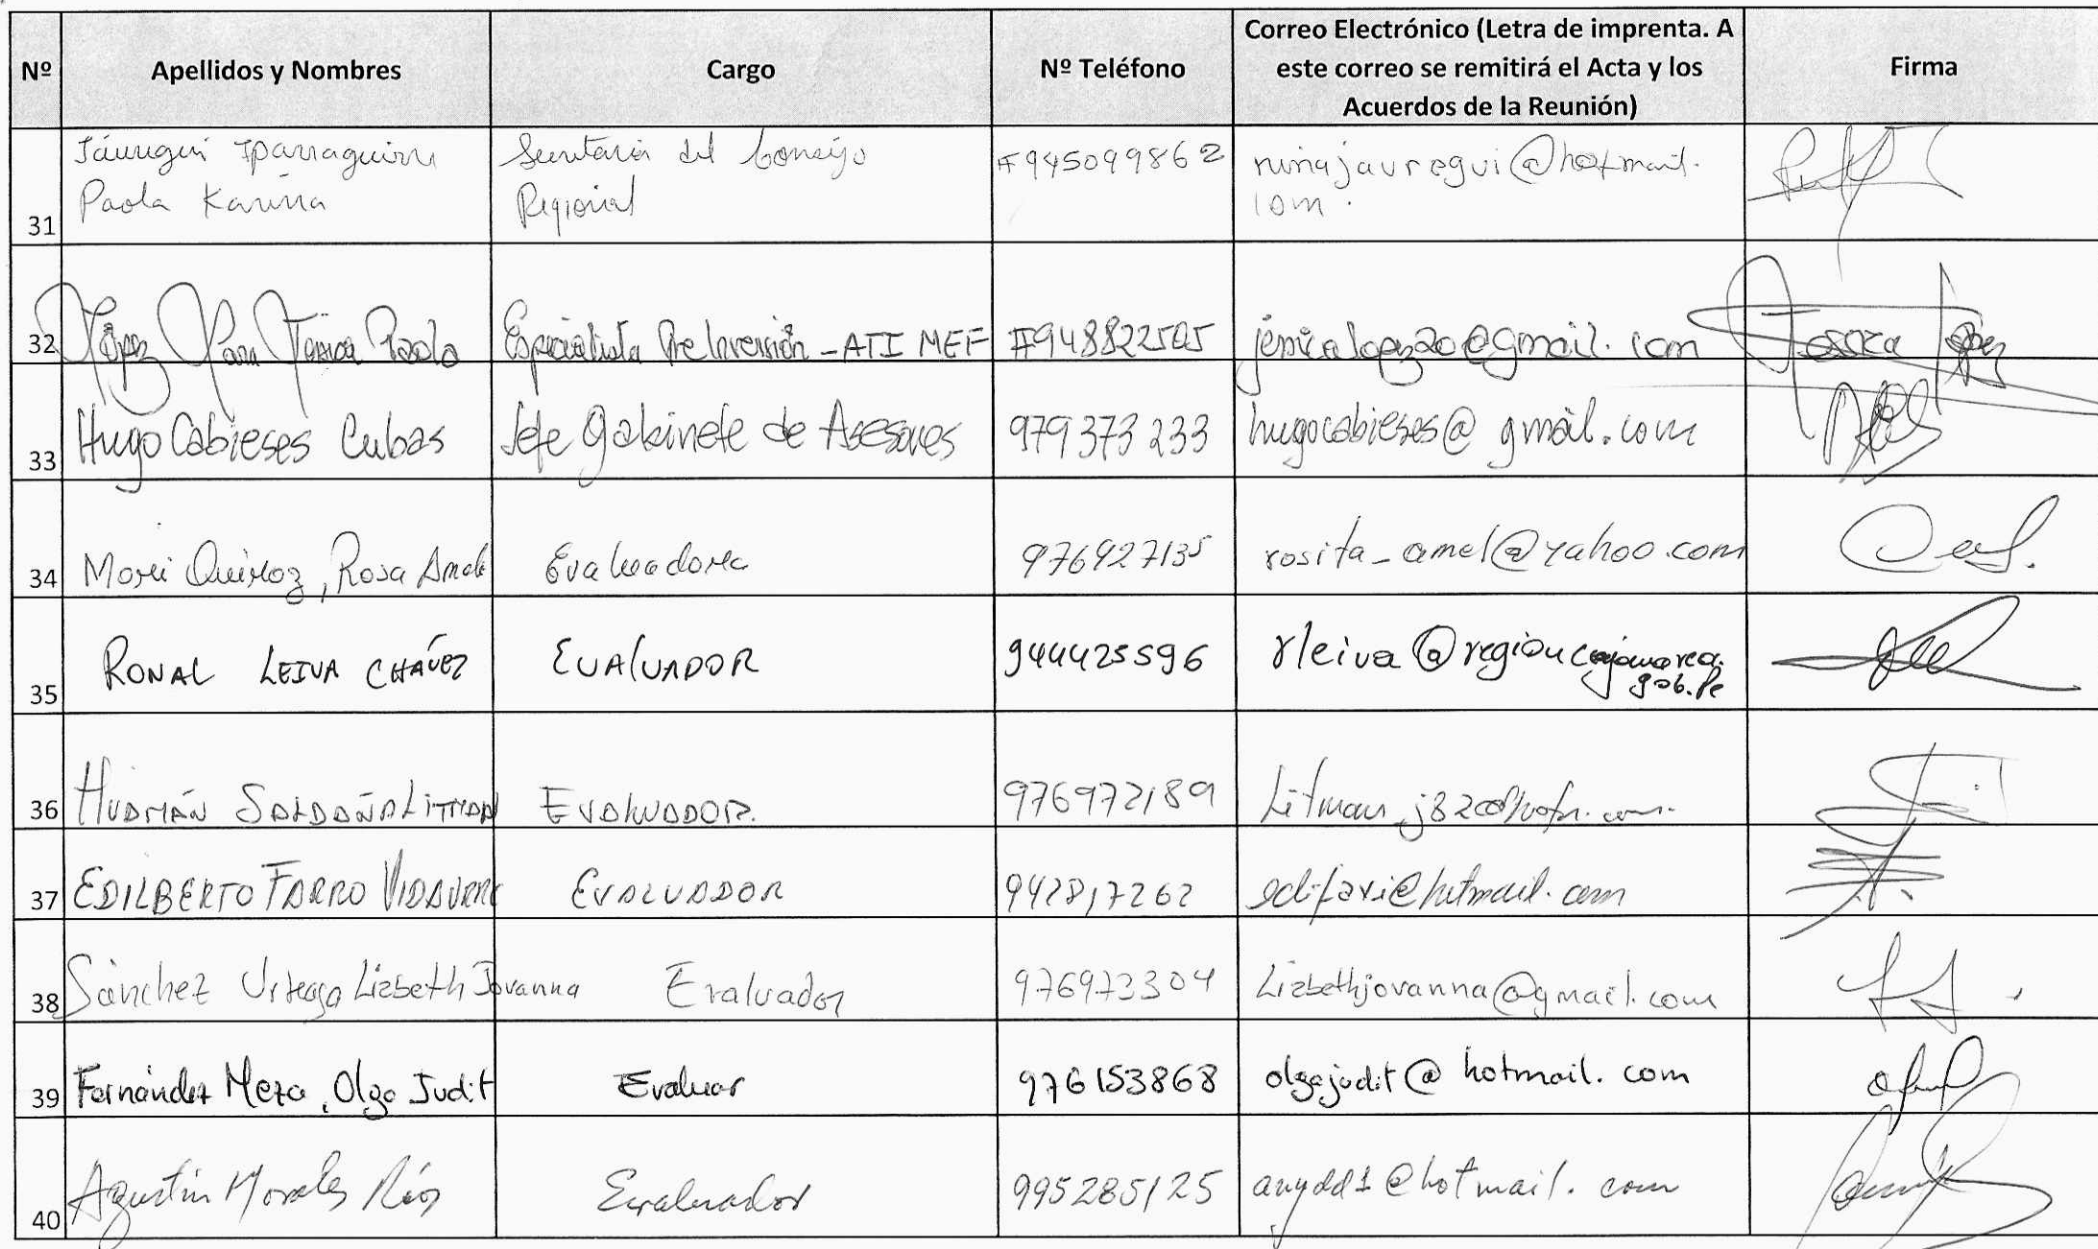 Nº
Apellidos y Nombres
Cargo
Nº Teléfono
Correo Electrónico (Letra de imprenta. A
este correo se remitirá el Acta y los
Acuerdos de la Reunión)
Firma
31
Jáuregui Iparraguirre
Paola Karina
Secretaria del Consejo
Regional
#945099862
ninajauregui@hotmail.
com.
32
López Yara Jésica Paola
Especialista Pre Inversión - ATI MEF
#948822505
jesicalopez20@gmail.com
33
Hugo Cabieses Cubas
Jefe Gabinete de Asesores
979 373 233
hugocabieses@gmail.com
34
Mori Quiroz, Rosa Amel
Evaluadora
976927135
rosita_amel@yahoo.com
35
RONAL LEIVA CHÁVEZ
EVALUADOR
944425596
rleiva@regioncajamarca.
gob.pe
36
HUAMÁN SALDAÑA LITMAN
EVALUADOR.
976972189
37
EDILBERTO FARRO VIDAURRE
EVALUADOR
942817262
edifavi@hotmail.com
38
Sánchez Urteaga Lizbeth Jovanna
Evaluador
976973304
Lizbethjovanna@gmail.com
39
Fernández Meza, Olga Judit
Evaluar
976153868
olgajudit@hotmail.com
40
Agustín Morales Ríos
Evaluador
995285125
anydd1@hotmail.com